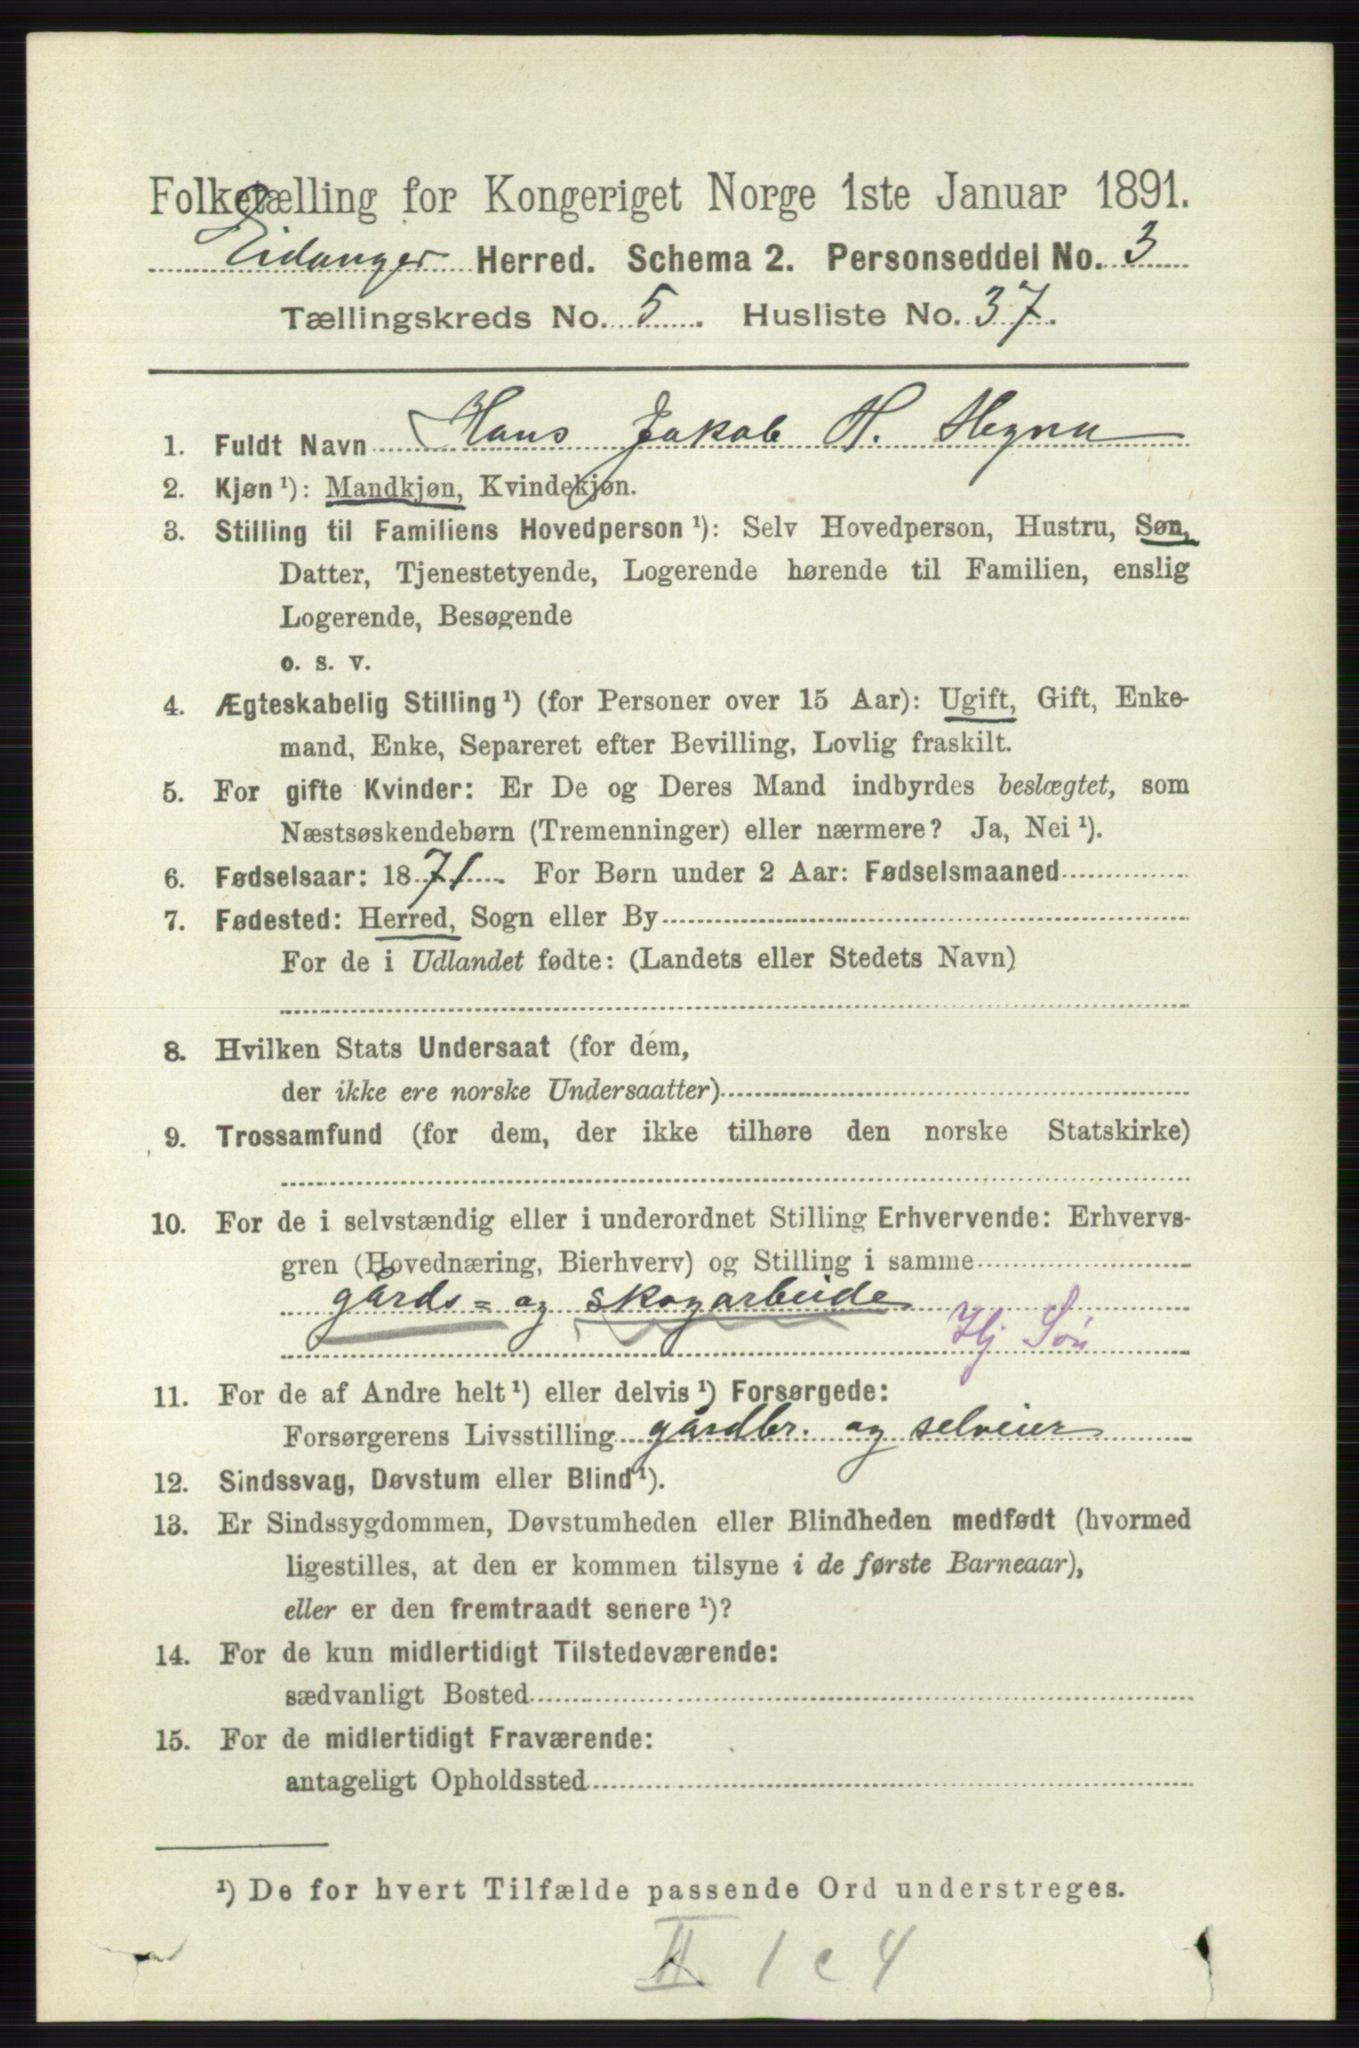 Folketælling for Kongeriget Norge 1ste Januar 1891.
Eidanger Herred. Schema 2. Personseddel No. 3
Tællingskreds No. 5. Husliste No. 37.
1. Fuldt Navn Hans Jakob H. Hegna
2. Kjøn ¹): Mandkjøn, Kvindekjøn.
3. Stilling til Familiens Hovedperson ¹): Selv Hovedperson, Hustru, Søn,
Datter, Tjenestetyende, Logerende hørende til Familien, enslig
Logerende, Besøgende
o. s. v.
4. Ægteskabelig Stilling ¹) (for Personer over 15 Aar): Ugift, Gift, Enke-
mand, Enke, Separeret efter Bevilling, Lovlig fraskilt.
5. For gifte Kvinder: Er De og Deres Mand indbyrdes beslægtet, som
Næstsøskendebørn (Tremenninger) eller nærmere? Ja, Nei ¹).
6. Fødselsaar: 1871. For Børn under 2 Aar: Fødselsmaaned
7. Fødested: Herred, Sogn eller By
For de i Udlandet fødte: (Landets eller Stedets Navn)
8. Hvilken Stats Undersaat (for dem,
der ikke ere norske Undersaatter)
9. Trossamfund (for dem, der ikke tilhøre den norske Statskirke)
10. For de i selvstændig eller i underordnet Stilling Erhvervende: Erhvervs-
gren (Hovednæring, Bierhverv) og Stilling i samme
gårds= og skogarbeide
Hj Søn
11. For de af Andre helt ¹) eller delvis ¹) Forsørgede:
Forsørgerens Livsstilling gårdbr. og selveier
12. Sindssvag, Døvstum eller Blind ¹).
13. Er Sindssygdommen, Døvstumheden eller Blindheden medfødt (hvormed
ligestilles, at den er kommen tilsyne i de første Barneaar),
eller er den fremtraadt senere ¹)?
14. For de kun midlertidigt Tilstedeværende:
sædvanligt Bosted
15. For de midlertidigt Fraværende:
antageligt Opholdssted
¹) De for hvert Tilfælde passende Ord understreges.
II 1 c 4